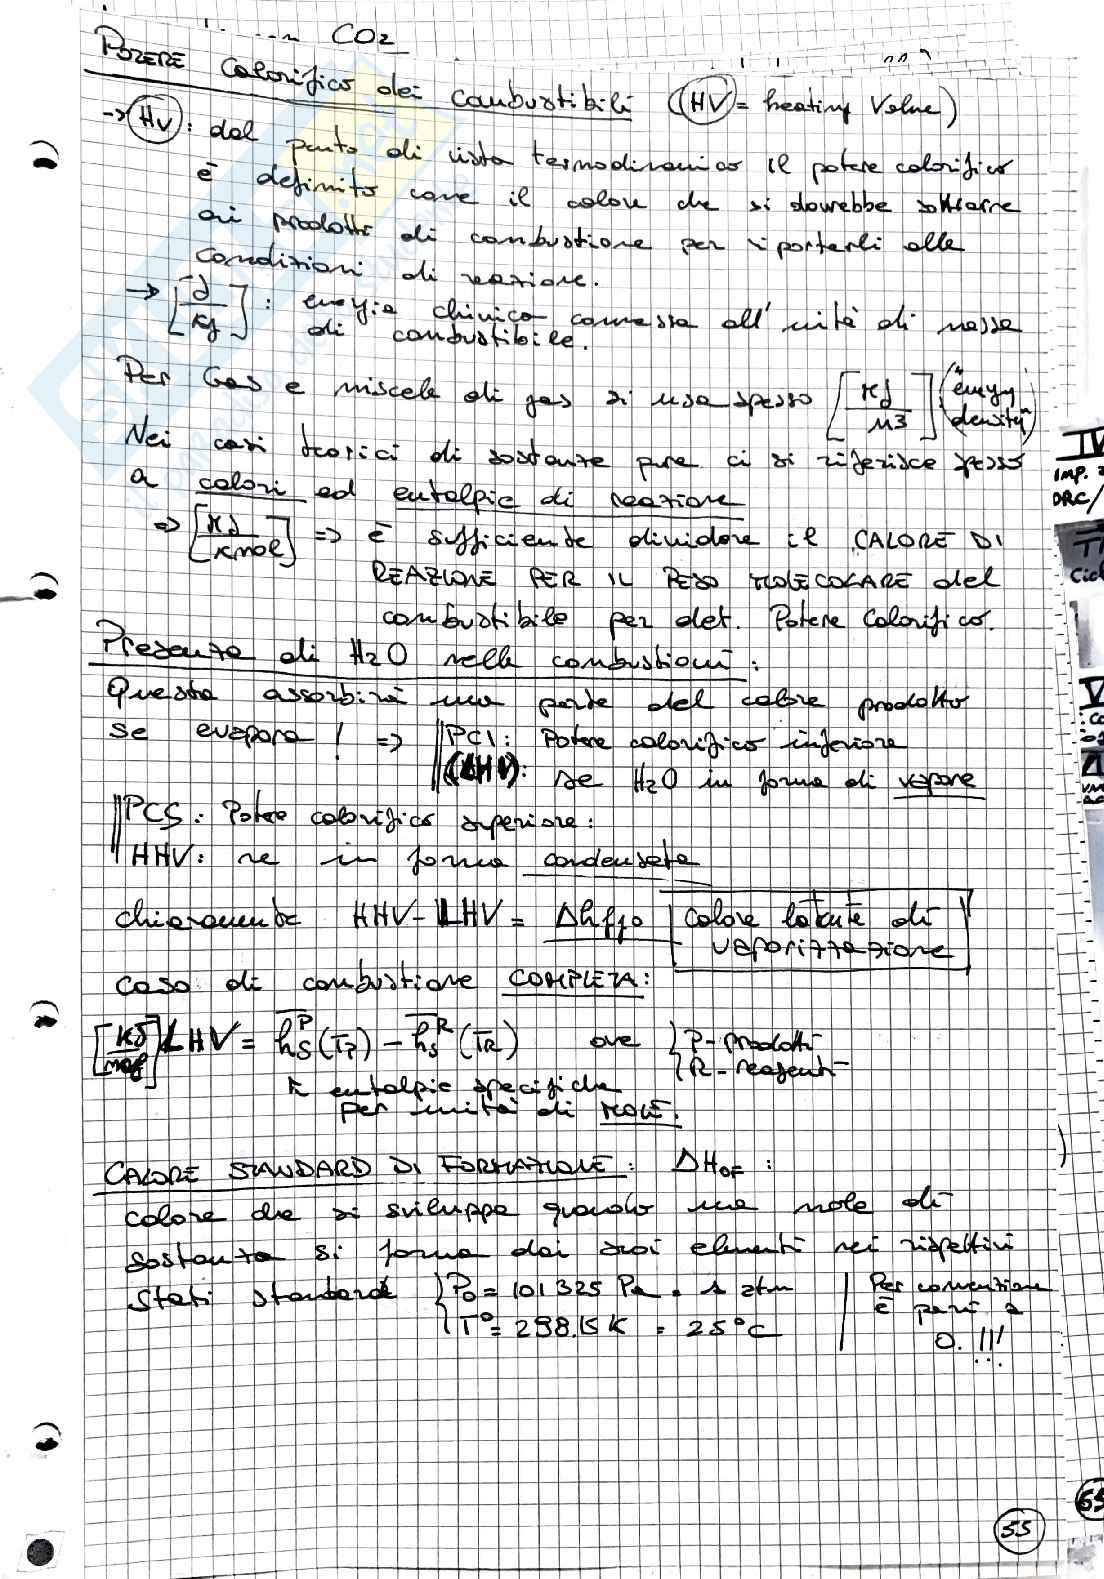 CO2
POTERE Calorifico dei combustibili (HV = heating Value)
→ HV : dal punto di vista termodinamico il potere calorifico
è definito come il calore che si dovrebbe sottrarre
ai prodotti di combustione per riportarli alle
condizioni di reazione.
→ [J/Kg] : energia chimica connessa all'unità di massa
di combustibile.
Per Gas e miscele di gas si usa spesso [KJ/m3] ("energy density")
Nei casi teorici di sostanze pure ci si riferisce spesso
a calori ed entalpie di reazione
⇒ [KJ/Kmol] ⇒ è sufficiente dividere il CALORE DI
REAZIONE PER IL PESO MOLECOLARE del
combustibile per det. Potere Calorifico.
Presenza di H2O nelle combustioni :
Questa assorbirà una parte del calore prodotto
se evapora ! ⇒ PCI : Potere calorifico inferiore
(LHV): se H2O in forma di vapore
PCS : Potere calorifico superiore :
HHV : se in forma condensata
chiaramente HHV - LHV = Δhfg0 calore latente di
vaporizzazione
caso di combustione COMPLETA :
LHV = hsP (TP) - hsR (TR) ove { P - prodotti
R - reagenti
entalpie specifiche
per unità di MOLE.
CALORE STANDARD DI FORMAZIONE : ΔHOF :
calore che si sviluppa quando una mole di
sostanza si forma dai suoi elementi nei rispettivi
stati standard { P0 = 101325 Pa = 1 atm | Per convenzione
T° = 298.15 K = 25°C | è pari a
0. !!!
55
IV
IMP.
ORC/
Cicl
V
65